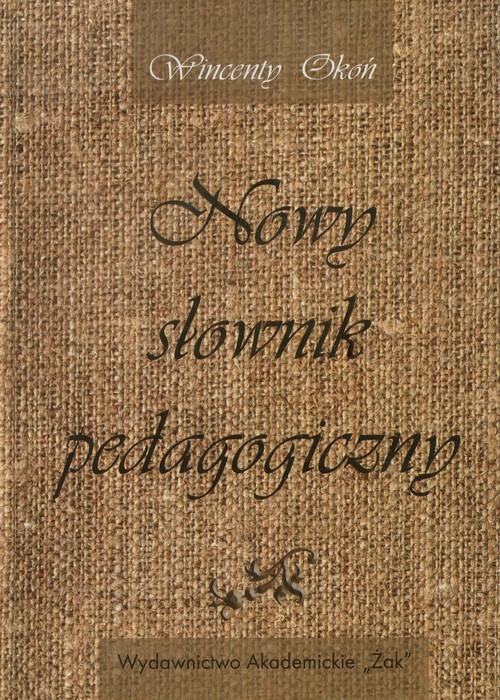 Wincenty Okoń
Nowy
słownik
pedagogiczny
Wydawnictwo Akademickie „Żak”